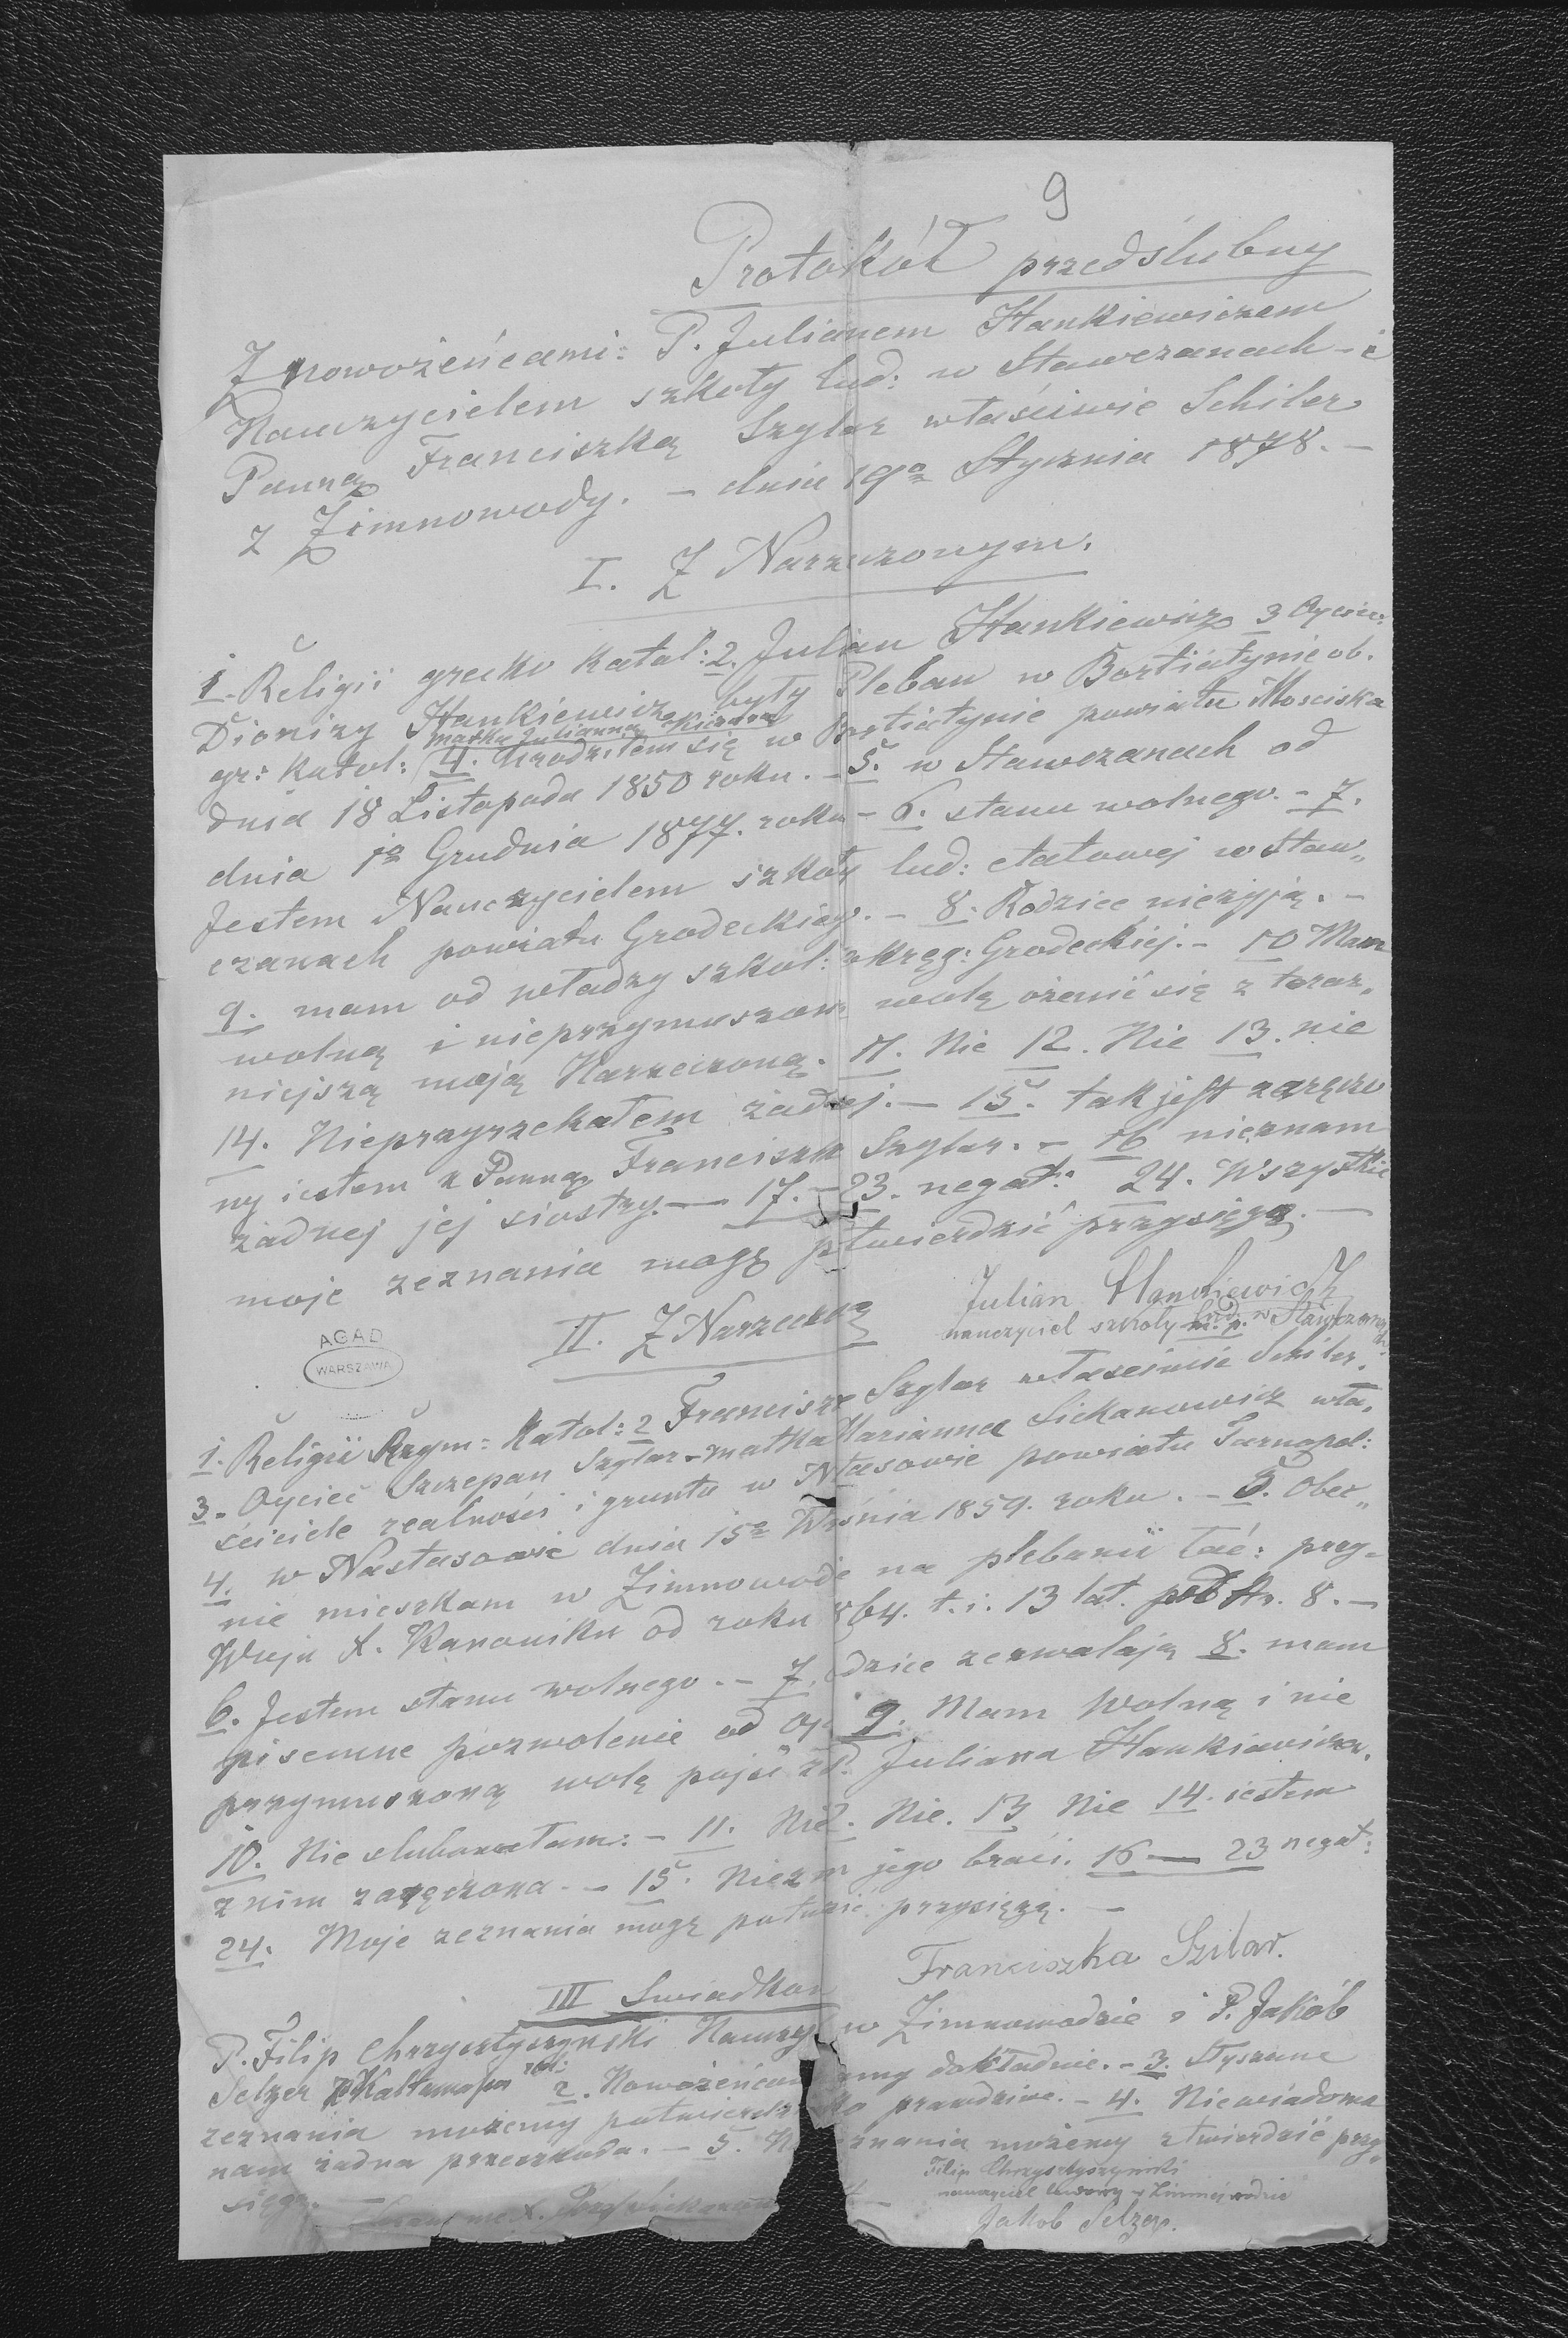 9
Protokół przedślubny
Z nowożeńcami: P. Julianem Hankiewiczem
Nauczycielem szkoły lud: w Stawczanach - i
Panną Franciszką Szylar właściwie Schiler
z Zimnowody. - dnia 19go Stycznia 1878. -
I. Z Narzeczonym.
1. Religii grecko katol: 2. Julian Hankiewicz 3 Ojciec:
Dionizy Hankiewicz były Pleban w Bortiatynie ob.
matka Julianna
gr: katol: 4. Urodziłem się w Bortiatynie powiatu Mosciska
dnia 18 Listopada 1850 roku. - 5. w Stawczanach od
dnia 1go Grudnia 1877. roku - 6. stanu wolnego. - 7.
Jestem Nauczycielem szkoły lud: etatowej w Staw„
czanach powiatu Grodeckiego. - 8. Rodzice nieżyją. -
9. mam od władzy szkol: okręg: Grodeckiej. - 10 Mam
wolną i nieprzymuszoną wolę ożenić się z teraz„
niejszą moją Narzeczoną. 11. Nie 12. Nie 13. nie
14. Nieprzyrzekałem żadnej. - 15. tak jest zaręczo
ny iestem z Panną Franciszk Szylar. - 16 nieznam
żadnej jej siostry. - 17. - 23. negat: 24. Wszystkie
moje zeznania mogę ptwierdzić przysięgą. -
Julian Hankiewicz
nauczyciel szkoły lud. w Stawczanach
II. Z Narzeczoną
AGAD
WARSZAWA
1. Religii Rzym: Katol: 2 Francisz Szylar właściwie Schiler.
3. Ojciec Szczepan Szylar - matka Marianna Sickanowicz wła„
ściciele realności i gruntu w Nastasowie powiatu Tarnopol:
4. w Nastasowie dnia 15go Wrśnia 1859. roku. - 5. Obec„
nie mieszkam w Zimnowodie na plebanii łać: przy
Wuju X. Kanoniku od roku 864. t. i. 13 lat. pod Nr. 8. -
6. Jestem stanu wolnego. - 7. odzice zezwalają 8. mam
pisemne pozwolenie od Oj 9. Mam wolną i nie
przymuszoną wolę pójść za P. Juliana Hankiewicza.
10. Nie slubowałam: - 11. Nie. Nie. 13 Nie 14. iestem
z nim zaręczona. - 15. Niezn jego braći. 16 - 23 negat:
24. Moje zeznania mogę przysięgą. -
Franciszka Szilar.
III Swiadkow
P. Filip Chrzysztyszynski Nauczy w Zimnowodzie i P. Jakób
Selzer z 2. Nowożeńców my dokładnie. - 3. Słyszane
zeznania możemy potwierdz o prawdziwe. - 4. Niewiadoma
nam żadna przeszkoda. - 5. N znania możemy ztwierdzić przy„
sięgą. -
Filip Chrzysztyszynski
nauczyciel ludowy w Zimnej wodzie
Jakob Selzer.